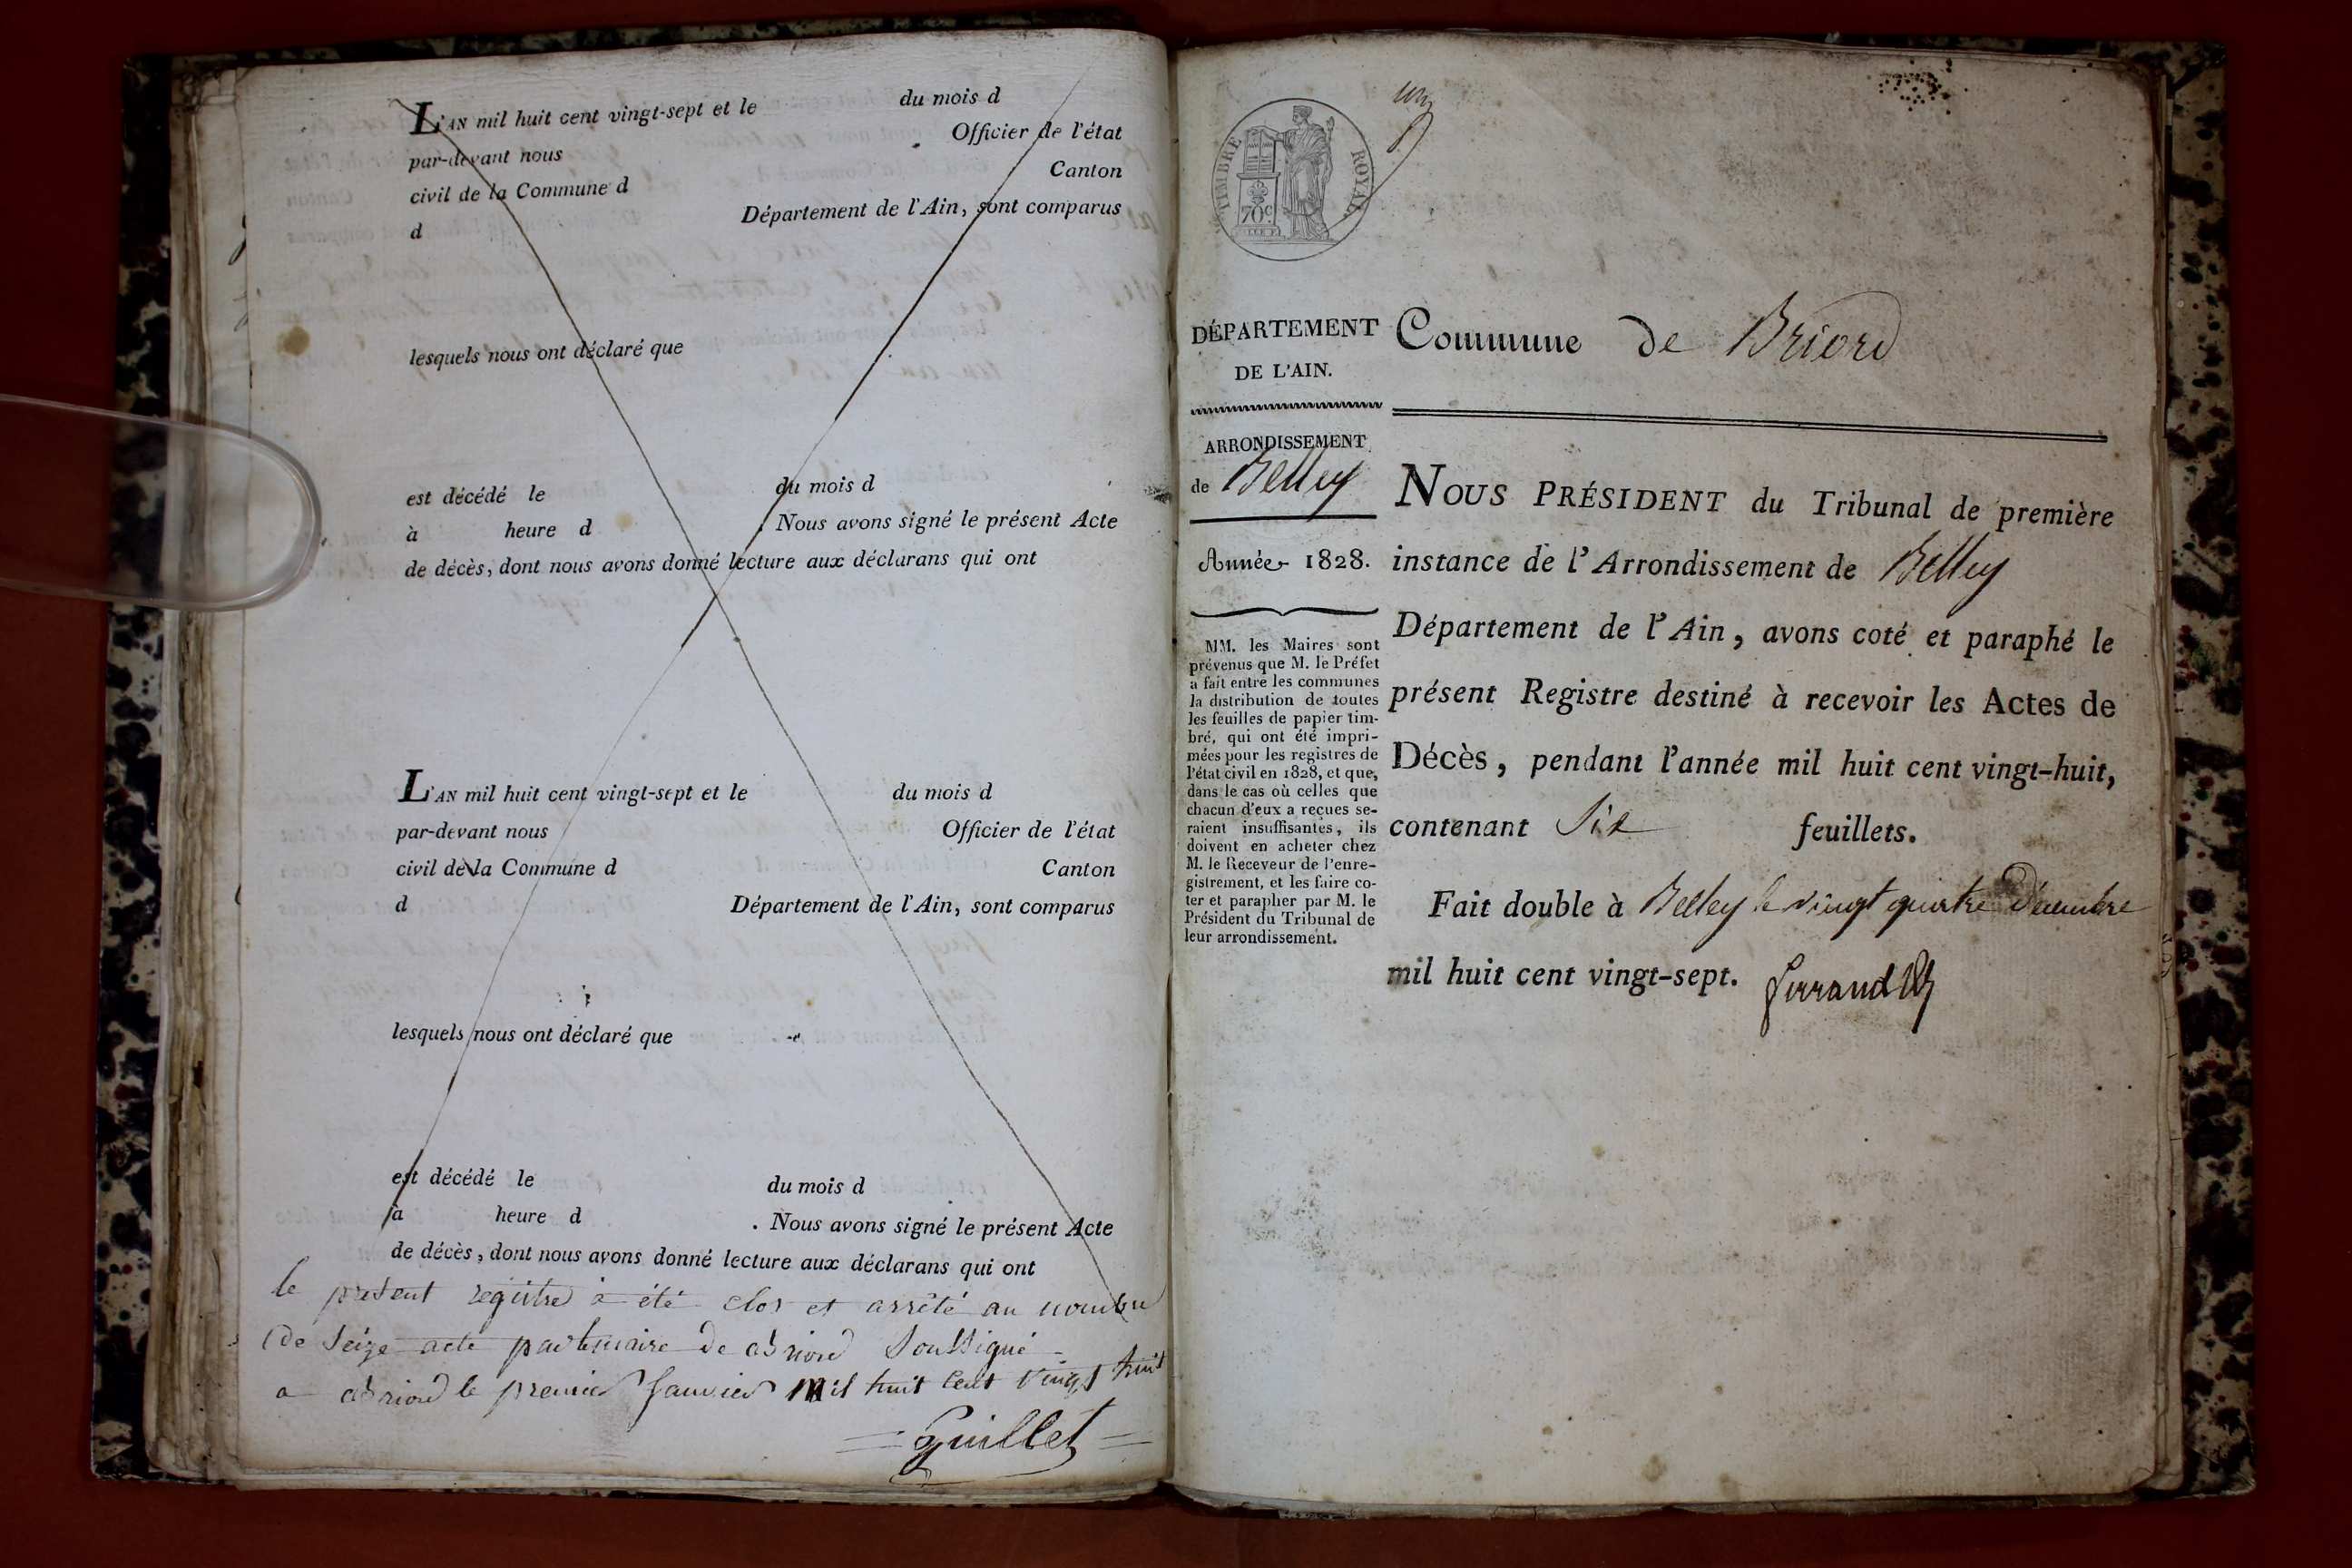 L'AN mil huit cent vingt-sept et le du mois d
par-devant nous Officier de l'état
civil de la Commune d Canton
d Département de l'Ain, sont comparus
lesquels nous ont déclaré que
est décédé le du mois d
à heure d . Nous avons signé le présent Acte
de décès, dont nous avons donné lecture aux déclarans qui ont
L'AN mil huit cent vingt-sept et le du mois d
par-devant nous Officier de l'état
civil de la Commune d Canton
d Département de l'Ain, sont comparus
lesquels nous ont déclaré que
est décédé le du mois d
à heure d . Nous avons signé le présent Acte
de décès, dont nous avons donné lecture aux déclarans qui ont
le present registre a été clos et arrêté au nombre
de seize acte par le maire de Briord Soussigné
a Briord le premier Janvier mil huit cent vingt huit
Guillet
un
TIMBRE ROYAL
70c.
DÉPARTEMENT
DE L'AIN.
ARRONDISSEMENT
de Belley
Année 1828.
MM. les Maires sont
prévenus que M. le Préfet
a fait entre les communes
la distribution de toutes
les feuilles de papier tim-
bré, qui ont été impri-
mées pour les registres de
l'état civil en 1828, et que,
dans le cas où celles que
chacun d'eux a reçues se-
raient insuffisantes, ils
doivent en acheter chez
M. le Receveur de l'enre-
gistrement, et les faire co-
ter et parapher par M. le
Président du Tribunal de
leur arrondissement.
Commune de Briord
NOUS PRÉSIDENT du Tribunal de première
instance de l'Arrondissement de Belley
Département de l'Ain, avons coté et paraphé le
présent Registre destiné à recevoir les Actes de
Décès, pendant l'année mil huit cent vingt-huit,
contenant Six feuillets.
Fait double à Belley le vingt quatre Décembre
mil huit cent vingt-sept. ferrand